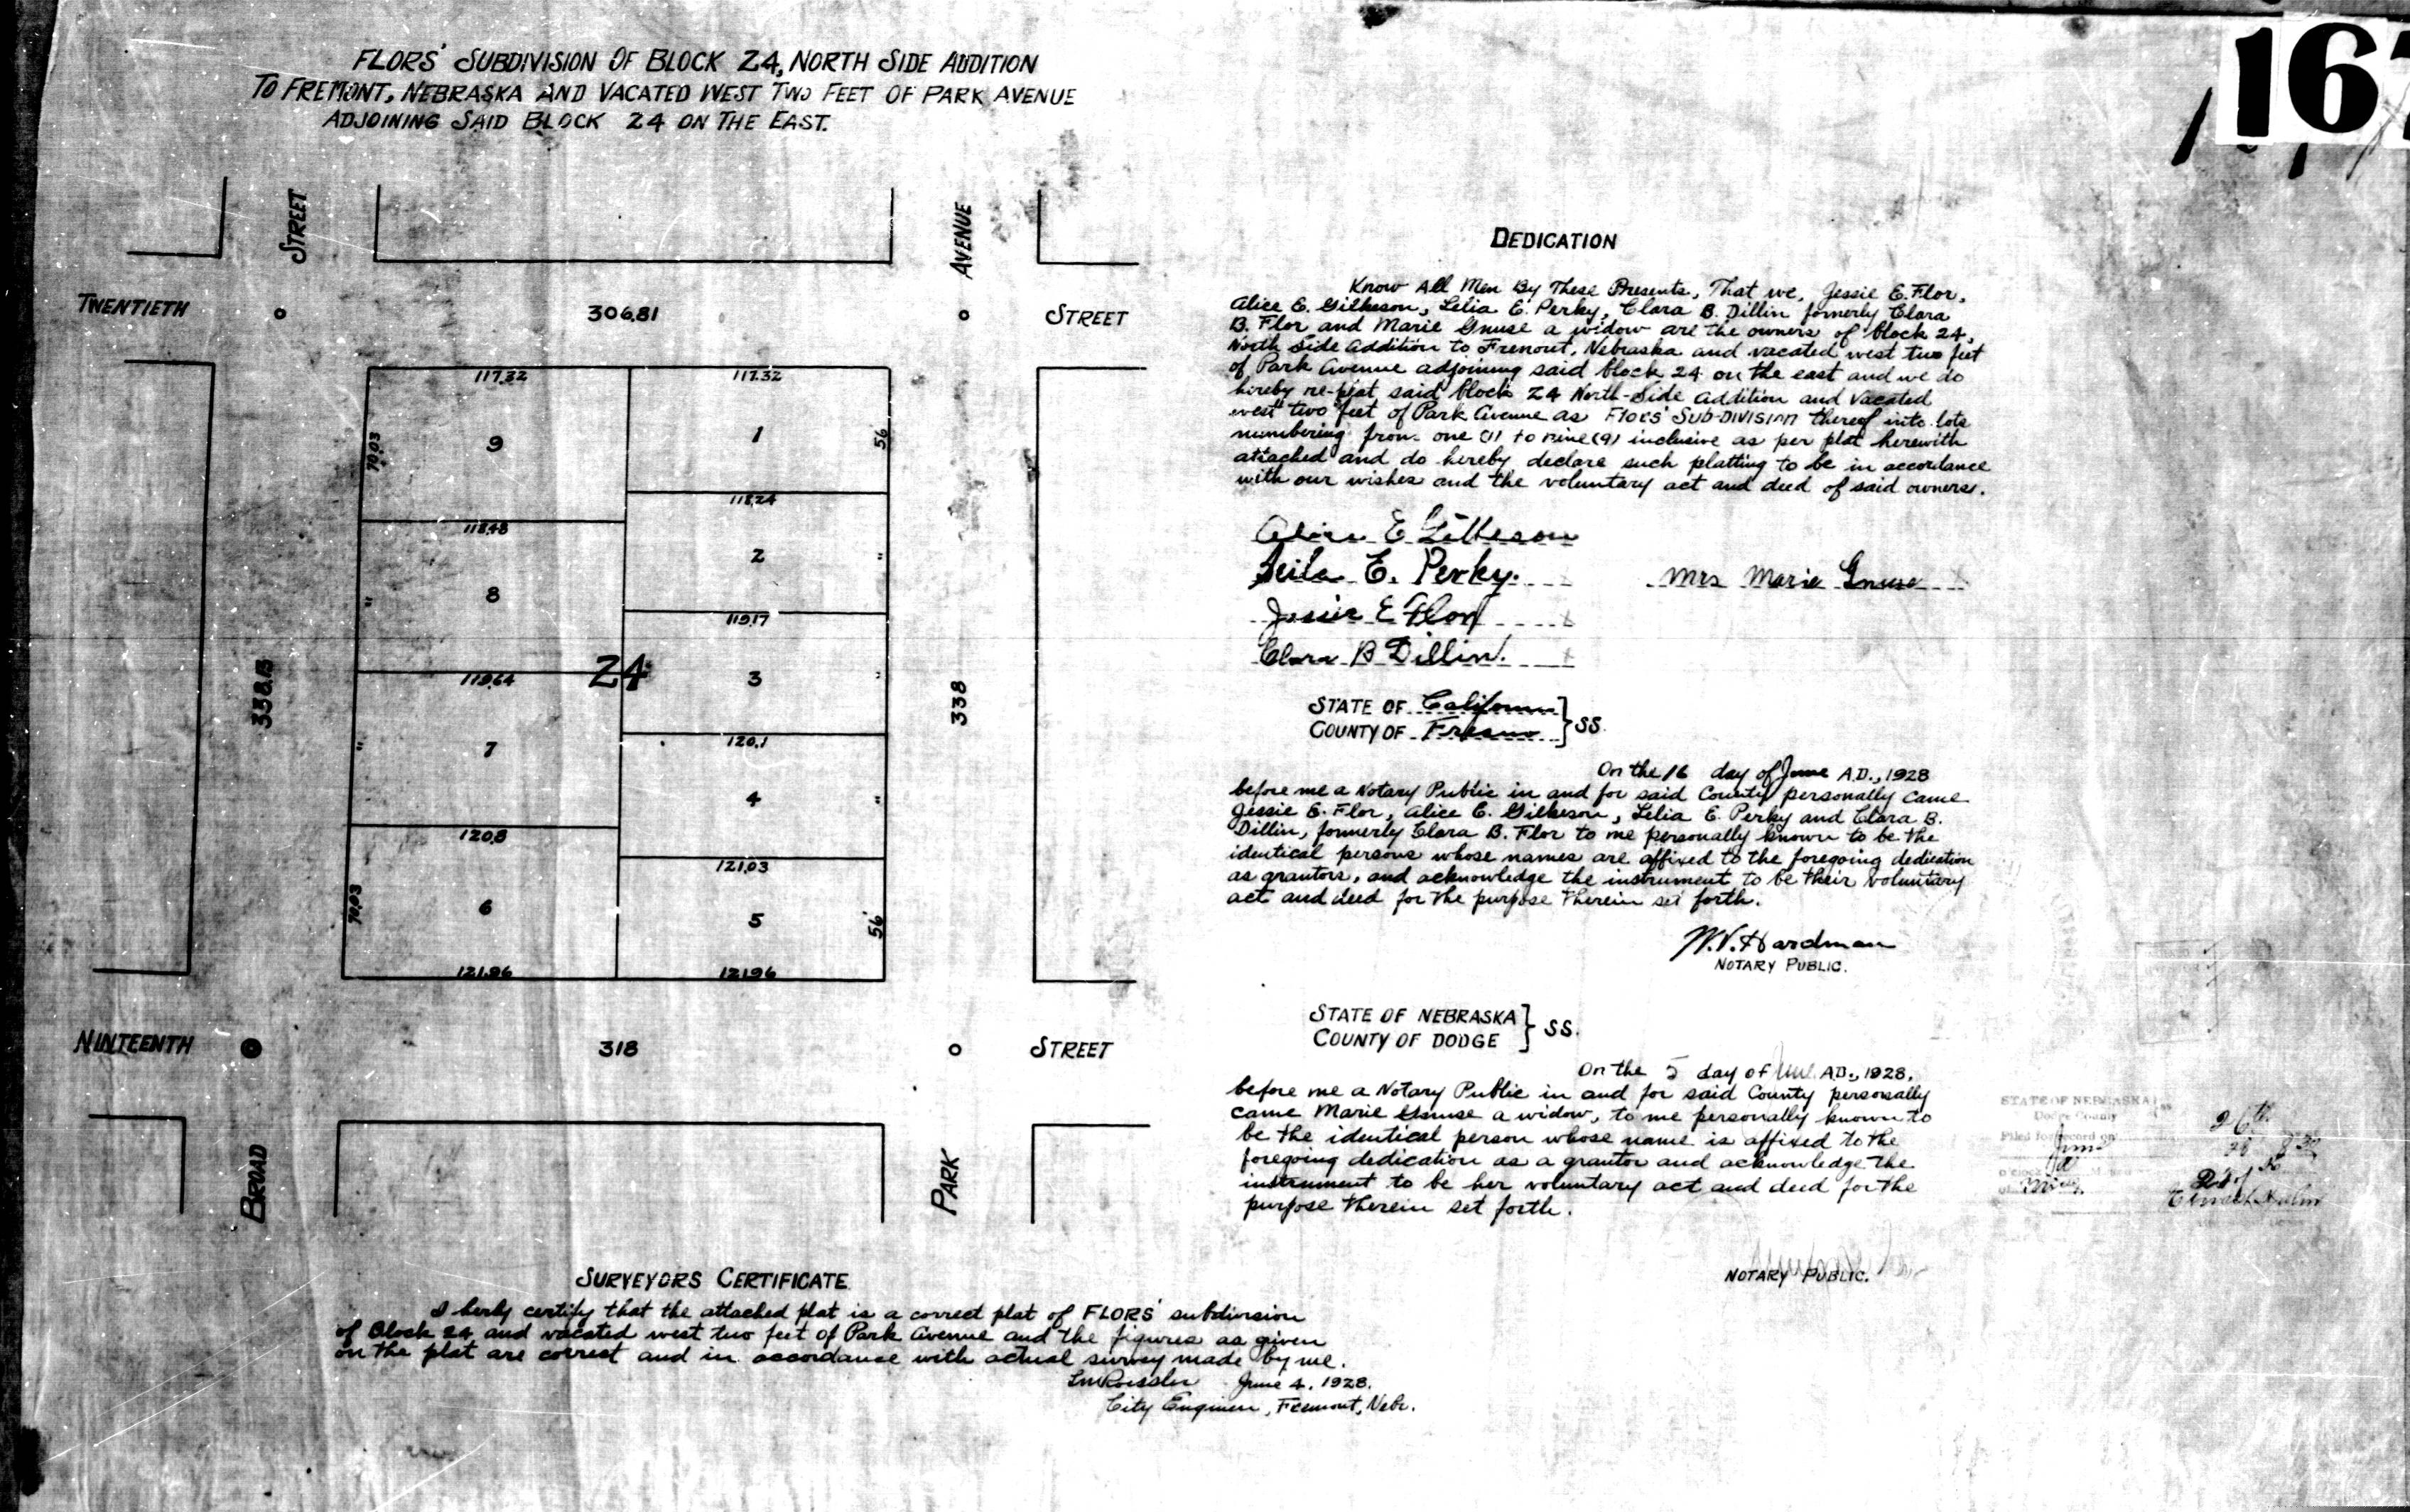 167
FLORS' SUBDIVISION OF BLOCK 24, NORTH SIDE ADDITION
TO FREMONT, NEBRASKA AND VACATED WEST TWO FEET OF PARK AVENUE
ADJOINING SAID BLOCK 24 ON THE EAST.
STREET
AVENUE
TWENTIETH
306.81
STREET
117.32
117.32
9
1
70.03
56
118.24
118.48
2
"
8
"
119.17
338.15
24
119.64
3
"
338
7
"
120.1
4
"
120.8
121.03
6
70.03
5
56
121.96
121.96
NINTEENTH
318
STREET
BROAD
PARK
SURVEYORS CERTIFICATE
I herby certify that the attached plat is a correct plat of FLORS' subdivision
of Block 24 and vacated west two feet of Park Avenue and the figures as given
on the plat are correct and in accordance with actual survey made by me.
June 4, 1928.
City Engineer, Fremont, Nebr.
DEDICATION
Know All Men By These Presents, That we, Jessie E. Flor,
Alice E. Gilkeson, Lelia E. Perky, Clara B. Dillin fomerly Clara
B. Flor and Marie Gnuse a widow are the owners of block 24,
North Side Addition to Fremont, Nebraska and vacated west two feet
of Park Avenue adjoining said block 24 on the east and we do
hereby re-plat said block 24 North-Side addition and vacated
west two feet of Park Avenue as FLORS' SUB-DIVISION thereof into lots
numbering from one (1) to nine (9) inclusive as per plat herewith
attached and do hereby declare such platting to be in accordance
with our wishes and the voluntary act and deed of said owners.
Alice E Gilkeson
Leila E. Perky.
Mrs Marie Gnuse
Jessie E Flor
Clara B Dillin.
STATE OF California
COUNTY OF Fresno } SS.
On the 16 day of June A.D., 1928
before me a Notary Public in and for said County personally came
Jessie E. Flor, Alice E. Gilkeson, Lelia E. Perky and Clara B.
Dillin, formerly Clara B. Flor to me personally known to be the
identical persons whose names are affixed to the foregoing dedication
as grantors, and acknowledge the instrument to be their voluntary
act and deed for the purpose therein set forth.
W.V. Hardman
NOTARY PUBLIC.
STATE OF NEBRASKA
COUNTY OF DODGE } SS.
On the 5 day of A.D., 1928,
before me a Notary Public in and for said County personally
came Marie Gnuse a widow, to me personally known to
be the identical person whose name is affixed to the
foregoing dedication as a grantor and acknowledge the
instrument to be her voluntary act and deed for the
purpose therein set forth.
NOTARY PUBLIC.
STATE OF NEBRASKA } ss
Dodge County
Filed for record on
26th
June
28